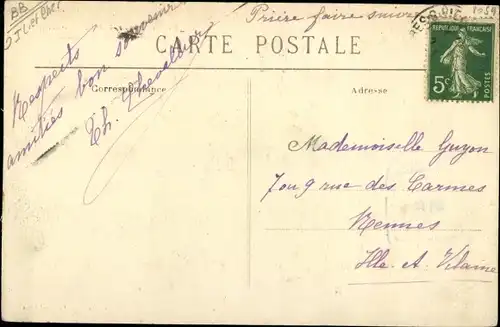 BB
Prière faire suivre
CARTE POSTALE
REPUBLIQUE FRANÇAISE
5c POSTES
Correspondance
Adresse
Respects
amitiés bon souvenir
Th. Chevallier
Mademoiselle Guyon
7 ou 9 rue des Carmes
Rennes
Ille et Vilaine